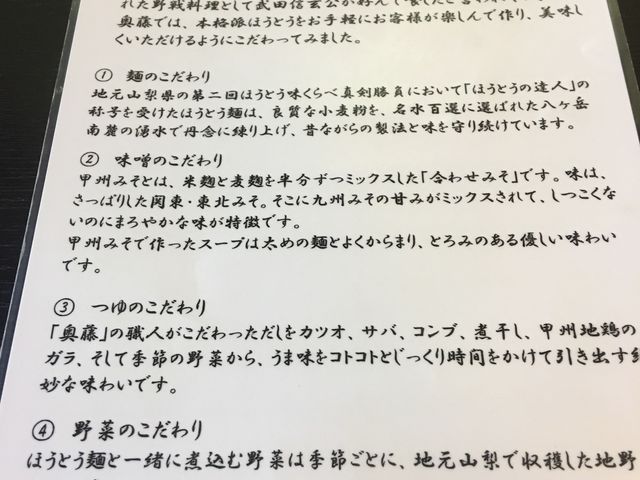 れた野戦料理として武田信玄公が好んで食したと言われ
奥藤では、本格派ほうとうをお手軽にお客様が楽しんで作り、美味し
くいただけるようにこだわってみました。
① 麺のこだわり
地元山梨県の第二回ほうとう味くらべ真剣勝負において「ほうとうの達人」の
称号を受けたほうとう麺は、良質な小麦粉を、名水百選に選ばれた八ヶ岳
南麓の湧水で丹念に練り上げ、昔ながらの製法と味を守り続けています。
② 味噌のこだわり
甲州みそとは、米麹と麦麹を半分ずつミックスした「合わせみそ」です。味は、
さっぱりした関東・東北みそ。そこに九州みその甘みがミックスされて、しつこくな
いのにまろやかな味が特徴です。
甲州みそで作ったスープは太めの麺とよくからまり、とろみのある優しい味わい
です。
③ つゆのこだわり
「奥藤」の職人がこだわっただしをカツオ、サバ、コンブ、煮干し、甲州地鶏の
ガラ、そして季節の野菜から、うま味をコトコトとじっくり時間をかけて引き出す
妙な味わいです。
④ 野菜のこだわり
ほうとう麺と一緒に煮込む野菜は季節ごとに、地元山梨で収穫した地野